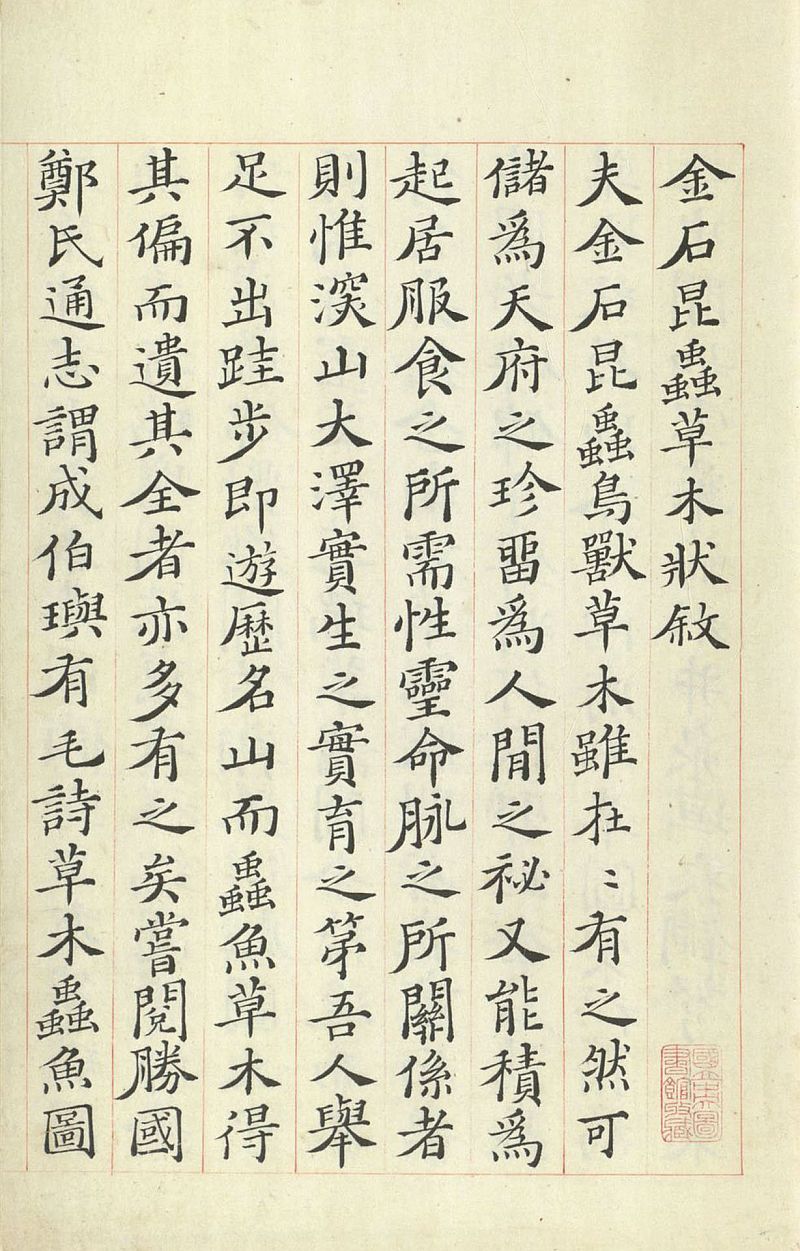 金石昆蟲草木狀敘
夫金石昆蟲鳥獸草木雖在〻有之然可
儲爲天府之珍畱爲人間之祕又能積爲
起居服食之所需性靈命脉之所關係者
則惟深山大澤實生之實育之第吾人舉
足不出跬步即遊歷名山而蟲魚草木得
其偏而遺其全者亦多有之矣嘗閱勝國
鄭氏通志謂成伯璵有毛詩草木蟲魚圖
國立中央圖
書館收藏